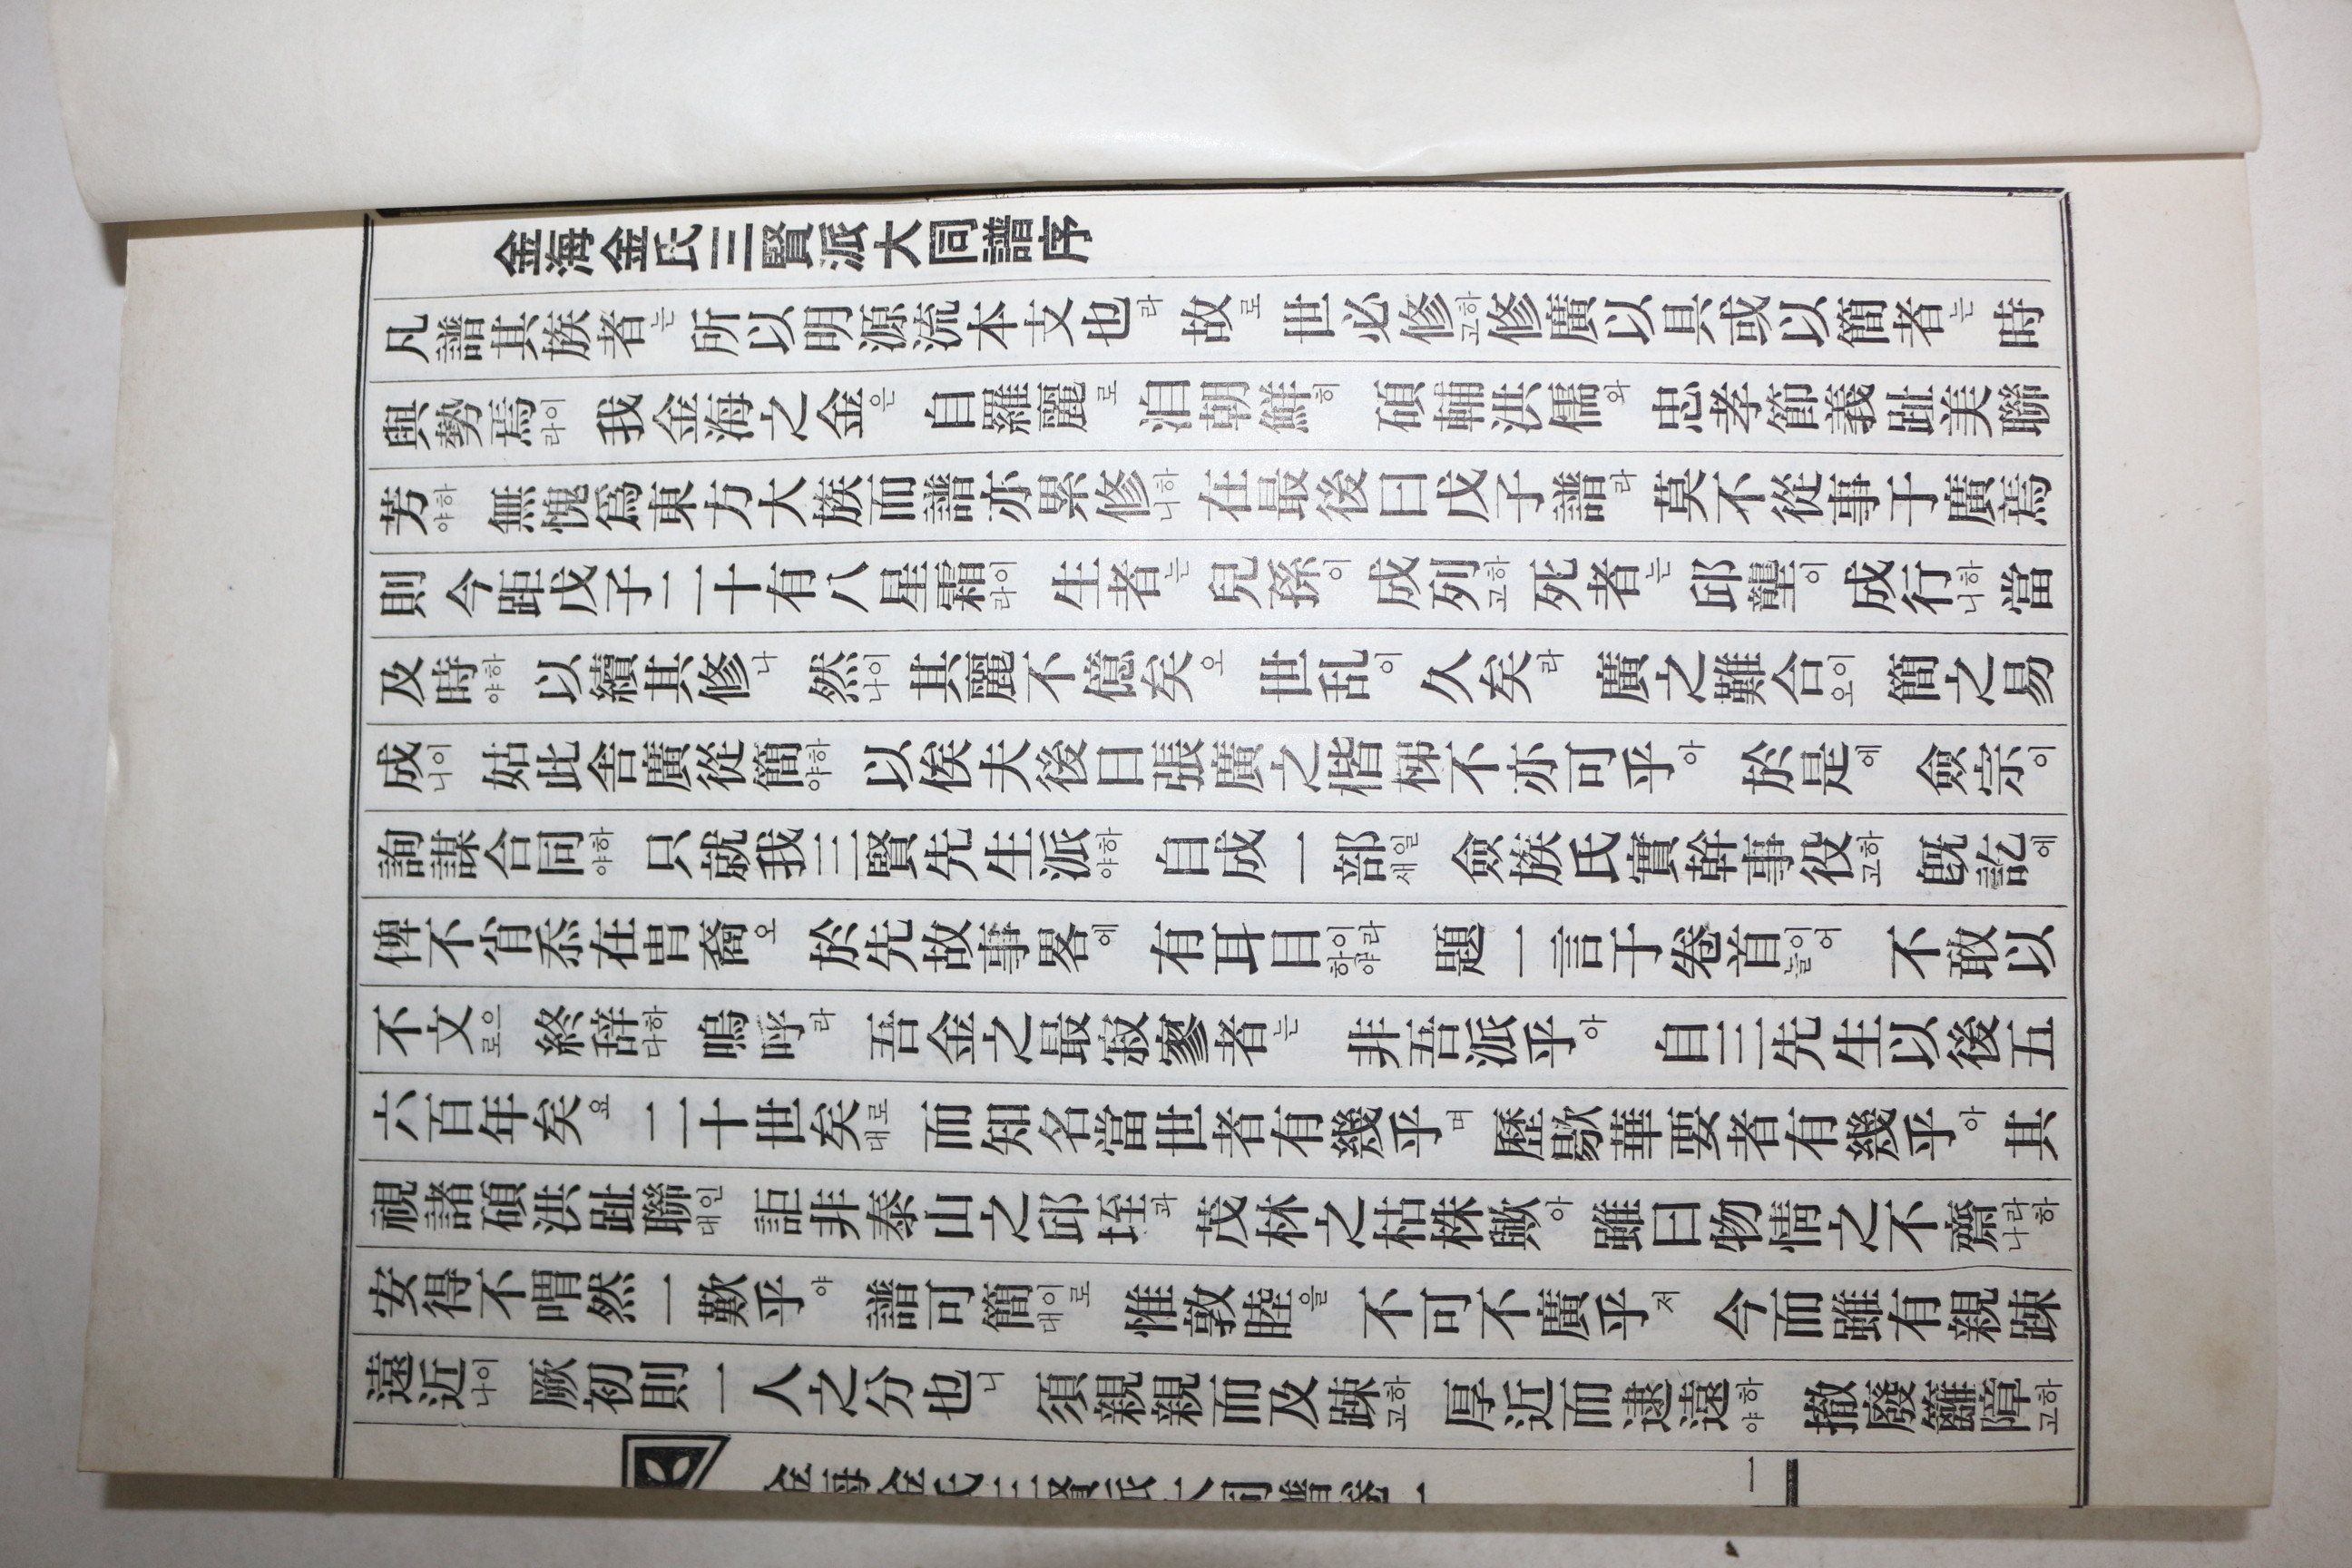 金海金氏三賢派大同譜序
凡譜其族者는 所以明源流本支也라 故로 世必修하고 修廣以具或以簡者는 時
與勢焉이라 我金海之金은 自羅麗로 洎朝鮮히 碩輔洪儒와 忠孝節義趾美聯
芳하야 無愧爲東方大族而譜亦累修하니 在最後曰戊子譜라 莫不從事于廣焉
則今距戊子二十有八星霜이라 生者는 兒孫이 成列하고 死者는 邱壟이 成行하니 當
及時하야 以續其修나 然이나 其麗不億矣오 世乱이 久矣라 廣之難合이오 簡之易
成이니 姑此舍廣從簡하야 以俟夫後日張廣之楷梯不亦可乎아 於是에 僉宗이
詢謀合同하야 只就我三賢先生派하야 自成一部일새 僉族氏實幹事役하고 旣訖에
俾不肖忝在冑裔오 於先故事畧에 有耳目이라하야 題一言于卷首이어늘 不敢以
不文으로 終辞하다 嗚呼라 吾金之最寂寥者는 非吾派乎아 自三先生以後五
六百年矣요 二十世矣로대 而知名當世者有幾乎며 歷歇華要者有幾乎아 其
視諸碩洪趾聯인대 詎非泰山之邱垤과 茂林之枯株歟아 雖曰物情之不齋라하나
安得不喟然一歎乎야 譜可簡이로대 惟敦睦을 不可不廣乎저 今而雖有親踈
遠近이나 厥初則一人之分也니 須親親而及踈하고 厚近而逮遠하야 撤廢籬障하고
金海金氏三賢派大同譜卷一
一